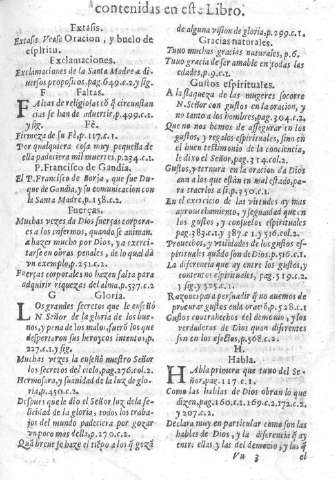 contenidas en este Libro.
Extasis.
Extasis. Vease Oracion, y buelo de
espiritu.
Exclamaciones.
Exclamaciones de la Santa Madre a di-
uersos propositos.pag.649.c.2.y sig.
F Faltas.
Faltas de religiosas cõ q̃ circunstan
cias se han de aduertir.p.499.c.1.
y sig.
Fè.
Firmeza de su Fè,p.117.c.1.
Por qualquiera cosa muy pequeña de
ella padeciera mil muertes.p.234.c.1.
P.Francisco de Gandia.
El P.Francisco de Borja, que fue Du-
que de Gandia,y su comunicacion con
la Santa Madre.p.158.c.2.
Fuerças.
Muchas vezes da Dios fuerças corpora-
es a los enfermos, quando se animan
a hazer mucho por Dios, ya exerci-
tarse en obras penales, de lo qual dà
vn exemplo,p.251.c.2.
Fuerças corporales no hazen falta para
adquirir riquezas del alma,p.537.c.2
G Gloria.
Los grandes secretos que le enseñò
N.Señor de la gloria de los bue-
nos, y pena de los malos,fuerõ los que
despertaron sus heroycos intentos,p.
227.c.1.y sig.
Muchas vezes la enseñò nuestro Señor
los secretos del cielo,pag.276.col.2.
Hermosura,y suanidad de la luz de glo-
ria,p.450.c.2.
Despues que le dio el Señor luz de la fe-
licidad de la gloria, todos los traba-
jos del mundo padeciera por gozar
vn poco mas della,p.270.c.2.
Quã breue se haze el tiẽpo a los q̃ gozã
de alguna vision de gloria,p.299.c.1.
Gracias naturales.
Tuuo muchas gracias naturales,p.6.
Tuuo gracia de ser amable en todas las
edades,p.9.c.1.
Gustos espirituales.
A la flaqueza de las mugeres socorre
N.Señor con gustos en la oracion, y
no tanto a los hombres,pag.304.c.2.
Que no nos hemos de assegurar en los
gustos, y regalos espirituales,sino en
el buen testimonio de la conciencia,
le dixo el Señor,pag.314.col.2.
Gustos,y ternura en la oracion da Dios
aun a los que estàn en mal estado,pa-
ra traerlos a si.p.350.c.1.
En el exercicio de las virtudes ay mas
aprouechamiento, y seguridad que en
los gustos, y consuelos espirituales
pag.383.c.1.y 387.c.1 y 516.col.2.
Prouechos, y vtilidades de los gustos es-
pirituales quãdo son de Dios,p.516.c.1
La diferencia que ay entre los gustos,y
contentos espirituales, pag.519.c.2
y sig.
Razones para persuadir q̃ no auemos de
procurar gustos en la oraciõ,p.528.c.1.
Gustos contrahechos del demonio, y los
verdaderos de Dios quan diferentes
son en los efectos,p.568.c.2.
H.
Habla.
Habla primera que tuuo del Se-
ñor.pag.117.c.1.
Como las hablas de Dios obran lo que
dizen,pag.160.c.2.169.c.2.172.c.2.
y 207.c.2.
Declara muy en particular como son las
hablas de Dios, y la diferencia q̃ ay
entre ellas y las del demonio, y las q̃
Vu 3 el